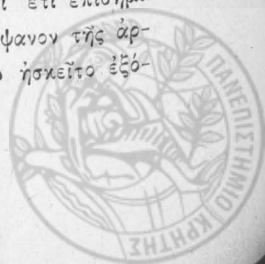 ἔτι ἐπίσημα
ψανον τῆς ἀρ-
ἠσκεῖτο ἐξό-
ΠΑΝΕΠΙΣΤΗΜΙΟ ΚΡΗΤΗΣ